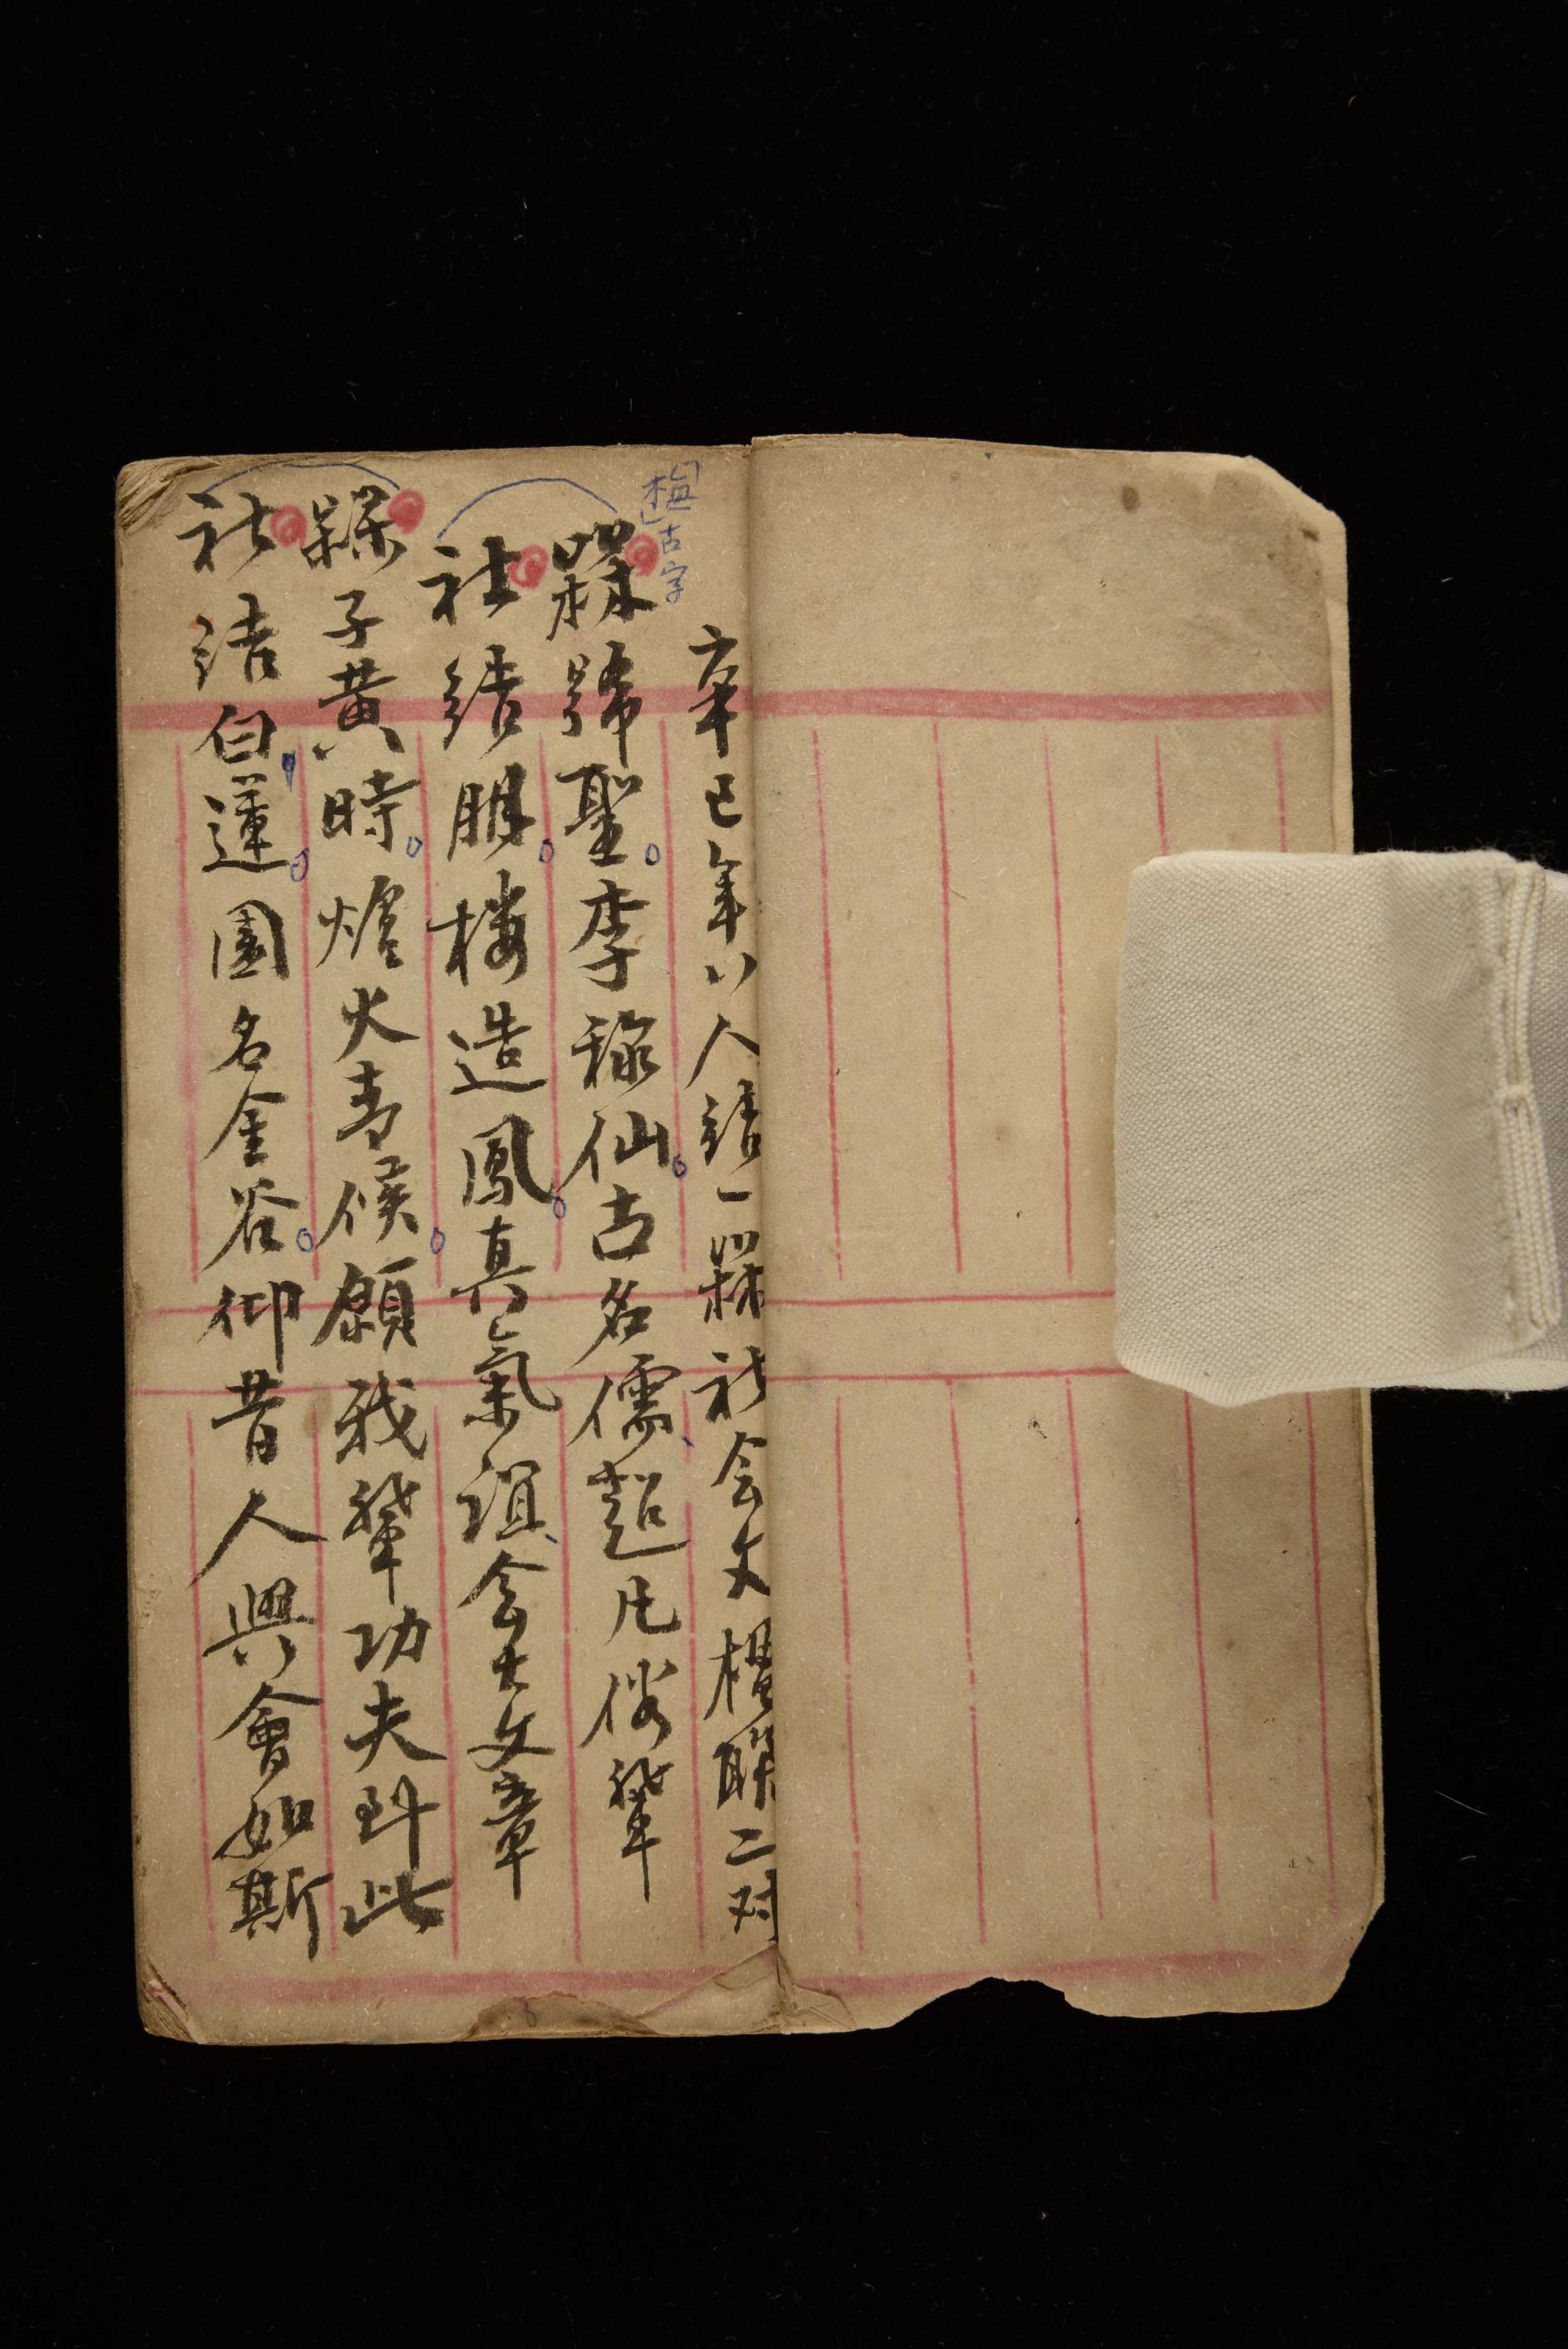 「梅」古字
辛巳年八人結一槑社会文楹聯二对
槑號聖。李称仙。古名儒、超凡俗輩
社結朋。楼造鳳。真氣誼、会大文章
槑子黄時。爐火青候。願我輩功夫到此
社結白蓮。園名金谷。仰昔人興會如斯